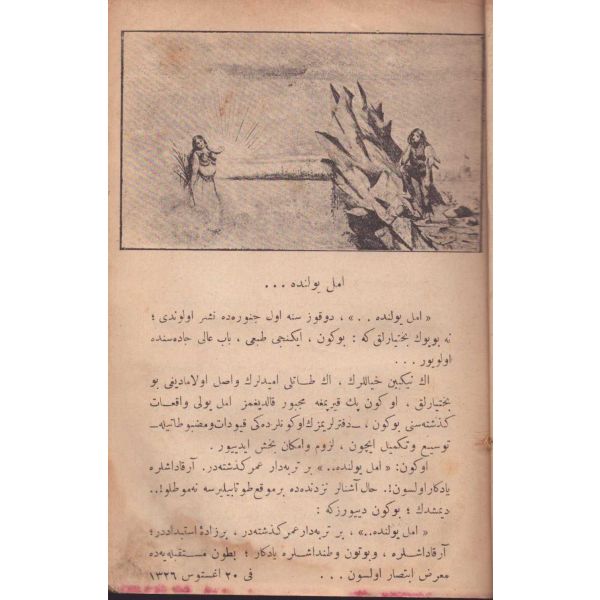 امل يولنده ...
« امل يولنده . . » ، دوقوز سنه اول جنوره‌ده نشر اولوندى ؛
نه بويوك بختيارلق كه : بوكون ، ايكنجى طبعى ، باب عالى جاده‌سنده
اولويور ...
اك نيكبين خياللرك ، اك طاتلى اميدلرك واصل اولاماديغى بو
بختيارلق ، او كون پك قيريمغه مجبور قالديغمز امل يولى واقعات
كذشته‌سنى بوكون ، ـ دفترلريمزك اوكونلرده‌كى قيودات ومضبوطاتيله ـ
توسيع و تكميل ايچون ، لزوم وامكان بخش ايدييور .
اوكون : « امل يولنده.. » بر تربه‌دار عمر كذشته‌در . آرقاداشلره
يادكار اولسون !. حال آشنالر نزدنده‌ده بر موقع طوتابيليرسه نه موطلو !..
ديمشدك ؛ بوكون دييورزكه :
« امل يولنده.. » ، بر تربه‌دار عمر كذشته‌در ، بر زادهٔ استبداددر ؛
آرقاداشلره ، وبوتون وطنداشلره يادكار ؛ بطون مستقبله‌يه‌ده
معرض ابتصار اولسون ...
فى ٢٠ اغستوس ١٣٢٦